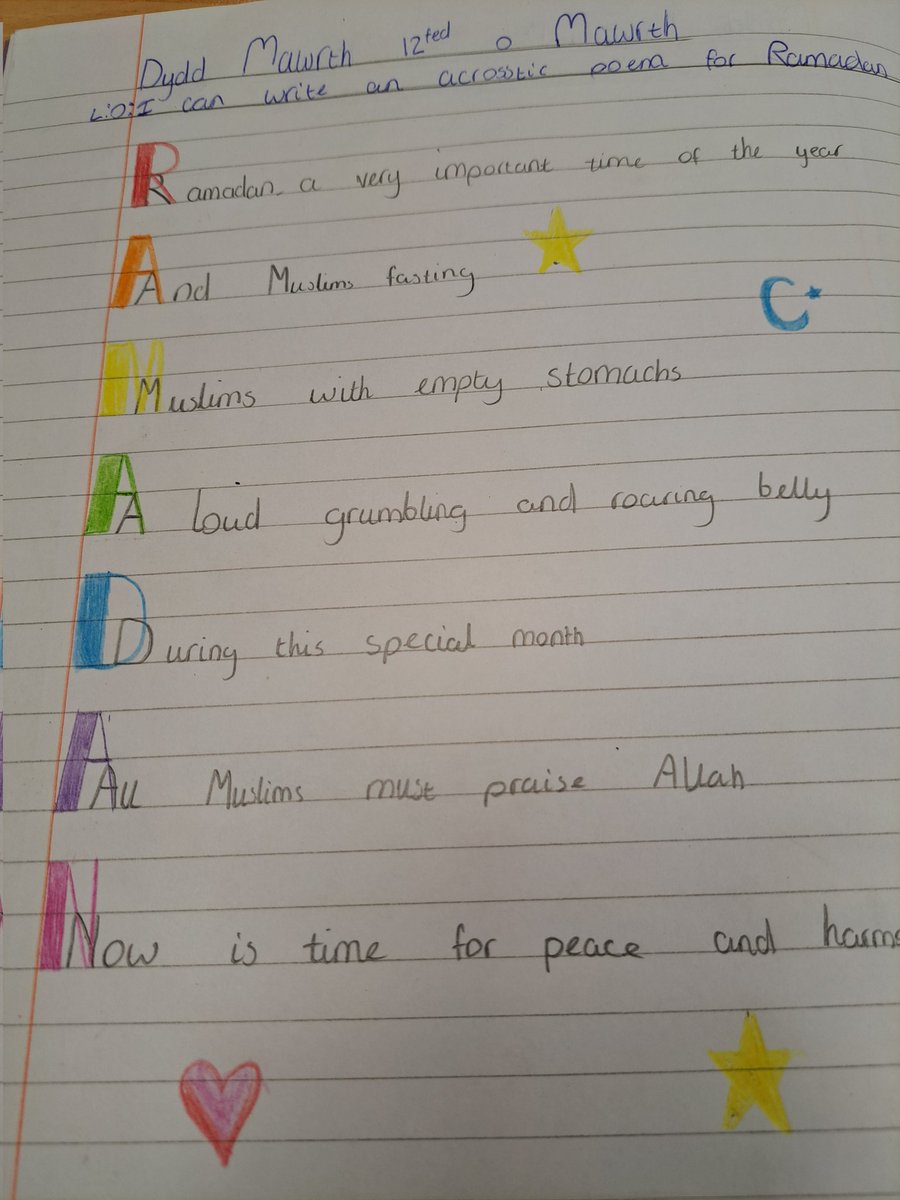 Dydd Mawrth 12fed o Mawrth
L:O: I can write an acrosstic poem for Ramadan
Ramadan- a very important time of the year
And Muslims fasting
Muslims with empty stomachs
A loud grumbling and roaring belly
During this special month
All Muslims must praise Allah
Now is time for peace and